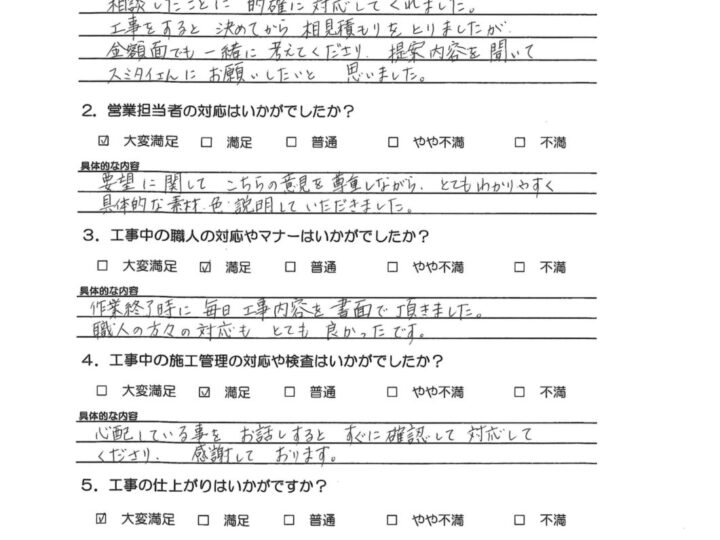 相談したことに 的確に対応してくれました。
工事をすると 決めてから 相見積もりを とりましたが
金額面でも 一緒に 考えてくださり、提案内容を聞いて
スミタイさんに お願いしたいと 思いました。
2. 営業担当者の対応はいかがでしたか?
☑ 大変満足 □ 満足 □ 普通 □ やや不満 □ 不満
具体的な内容
要望に関して こちらの意見を尊重しながら、とてもわかりやすく
具体的な素材・色・説明していただきました。
3. 工事中の職人の対応やマナーはいかがでしたか?
□ 大変満足 ☑ 満足 □ 普通 □ やや不満 □ 不満
具体的な内容
作業終了時に 毎日 工事内容を 書面で頂きました。
職人の方々の対応も とても 良かったです。
4. 工事中の施工管理の対応や検査はいかがでしたか?
□ 大変満足 ☑ 満足 □ 普通 □ やや不満 □ 不満
具体的な内容
心配している事を お話しすると すぐに確認して 対応して
くださり、 感謝して おります。
5. 工事の仕上がりはいかがですか?
☑ 大変満足 □ 満足 □ 普通 □ やや不満 □ 不満